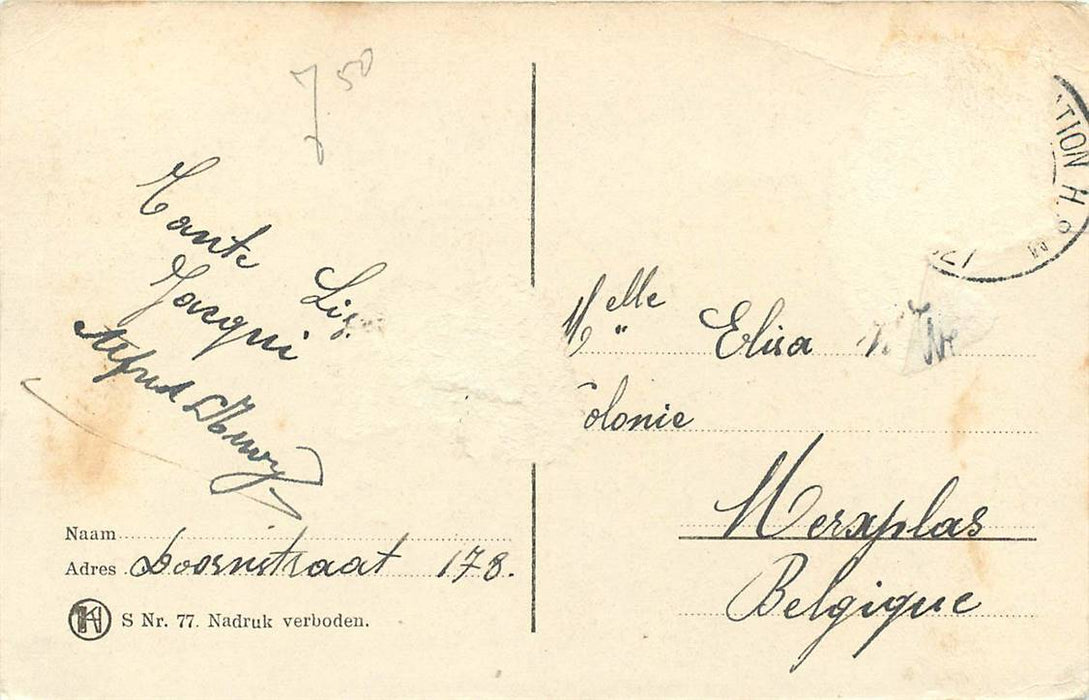 7 50
Tante
Lis.
Jacqui
Alfred
Naam
Adres Doornstraat 178.
S Nr. 77. Nadruk verboden.
ATION H.
Melle Elisa
olonie
Merxplas
Belgique